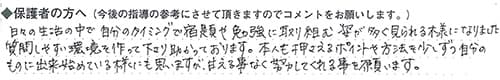 ◆保護者の方へ（今後の指導の参考にさせて頂きますのでコメントをお願いします。）
日々の生活の中で自分のタイミングで宿題や勉強に取り組む姿が多く見られる様になりました
質問しやすい環境を作って下さり助かっております。本人も押さえるポイントや方法を少しずつ自分の
ものに出来始めている様にも思いますが、甘える事なく努力してくれる事を願います。